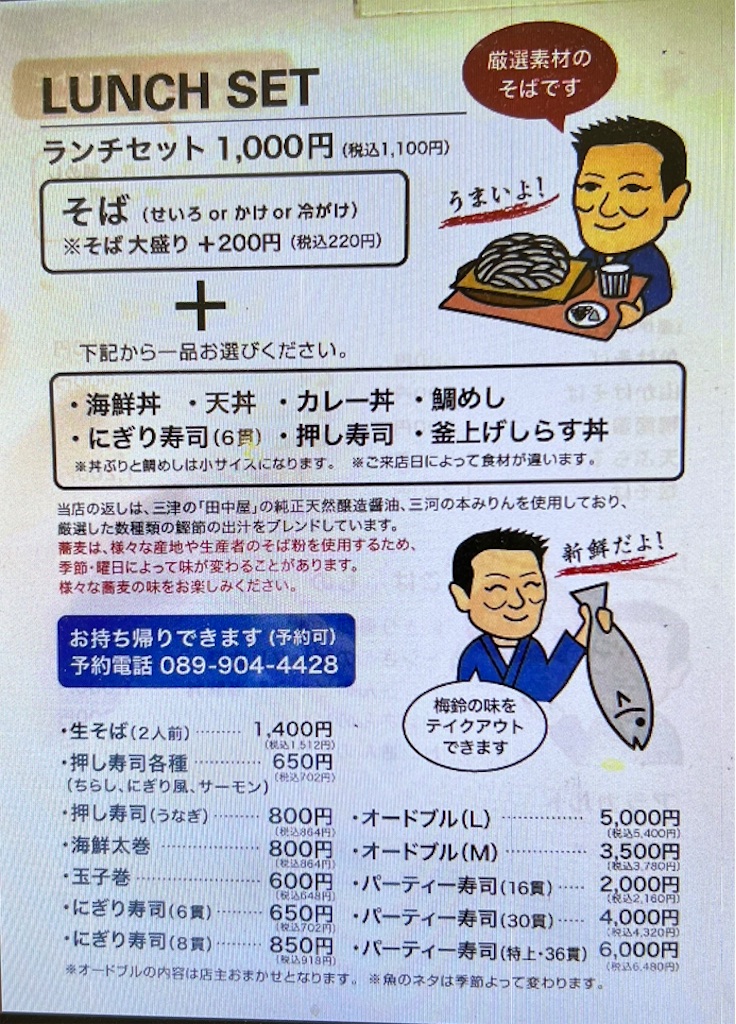 厳選素材の
そばです
LUNCH SET
ランチセット 1,000円 (税込1,100円)
うまいよ!
そば (せいろ or かけ or 冷がけ)
※そば大盛り +200円 (税込220円)
+
下記から一品お選びください。
・海鮮丼 ・天丼 ・カレー丼 ・鯛めし
・にぎり寿司(6貫) ・押し寿司 ・釜上げしらす丼
※丼ぶりと鯛めしは小サイズになります。 ※ご来店日によって食材が違います。
当店の返しは、三津の「田中屋」の純正天然醸造醤油、三河の本みりんを使用しており、
厳選した数種類の鰹節の出汁をブレンドしています。
蕎麦は、様々な産地や生産者のそば粉を使用するため、
季節・曜日によって味が変わることがあります。
様々な蕎麦の味をお楽しみください。
新鮮だよ!
お持ち帰りできます (予約可)
予約電話 089-904-4428
梅鈴の味を
テイクアウト
できます
・生そば(2人前) ········ 1,400円
(税込1,512円)
・押し寿司各種 ············ 650円
(税込702円)
(ちらし、にぎり風、サーモン)
・押し寿司(うなぎ) ········ 800円
(税込864円)
・海鮮太巻 ················ 800円
(税込864円)
・玉子巻 ·················· 600円
(税込648円)
・にぎり寿司(6貫) ········ 650円
(税込702円)
・にぎり寿司(8貫) ········ 850円
(税込918円)
・オードブル(L) ·············· 5,000円
(税込5,400円)
・オードブル(M) ·············· 3,500円
(税込3,780円)
・パーティー寿司(16貫) ····· 2,000円
(税込2,160円)
・パーティー寿司(30貫) ····· 4,000円
(税込4,320円)
・パーティー寿司(特上・36貫) 6,000円
(税込6,480円)
※オードブルの内容は店主おまかせとなります。 ※魚のネタは季節よって変わります。